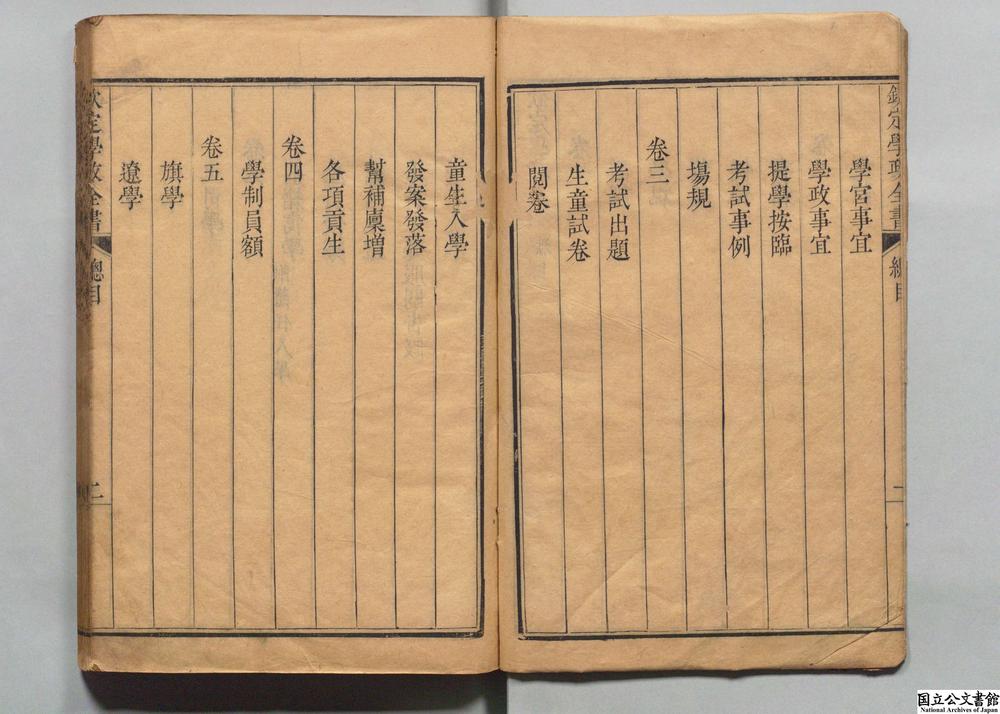 欽定學政全書 總目 一
學宮事宜
學政事宜
提學按臨
考試事例
塲規
卷三
考試出題
生童試卷
閱卷
童生入學
發案發落
幫補廩增
各項貢生
卷四
學制員額
卷五
旗學
遼學
欽定學政全書 總目 二
国立公文書館
National Archives of Japan